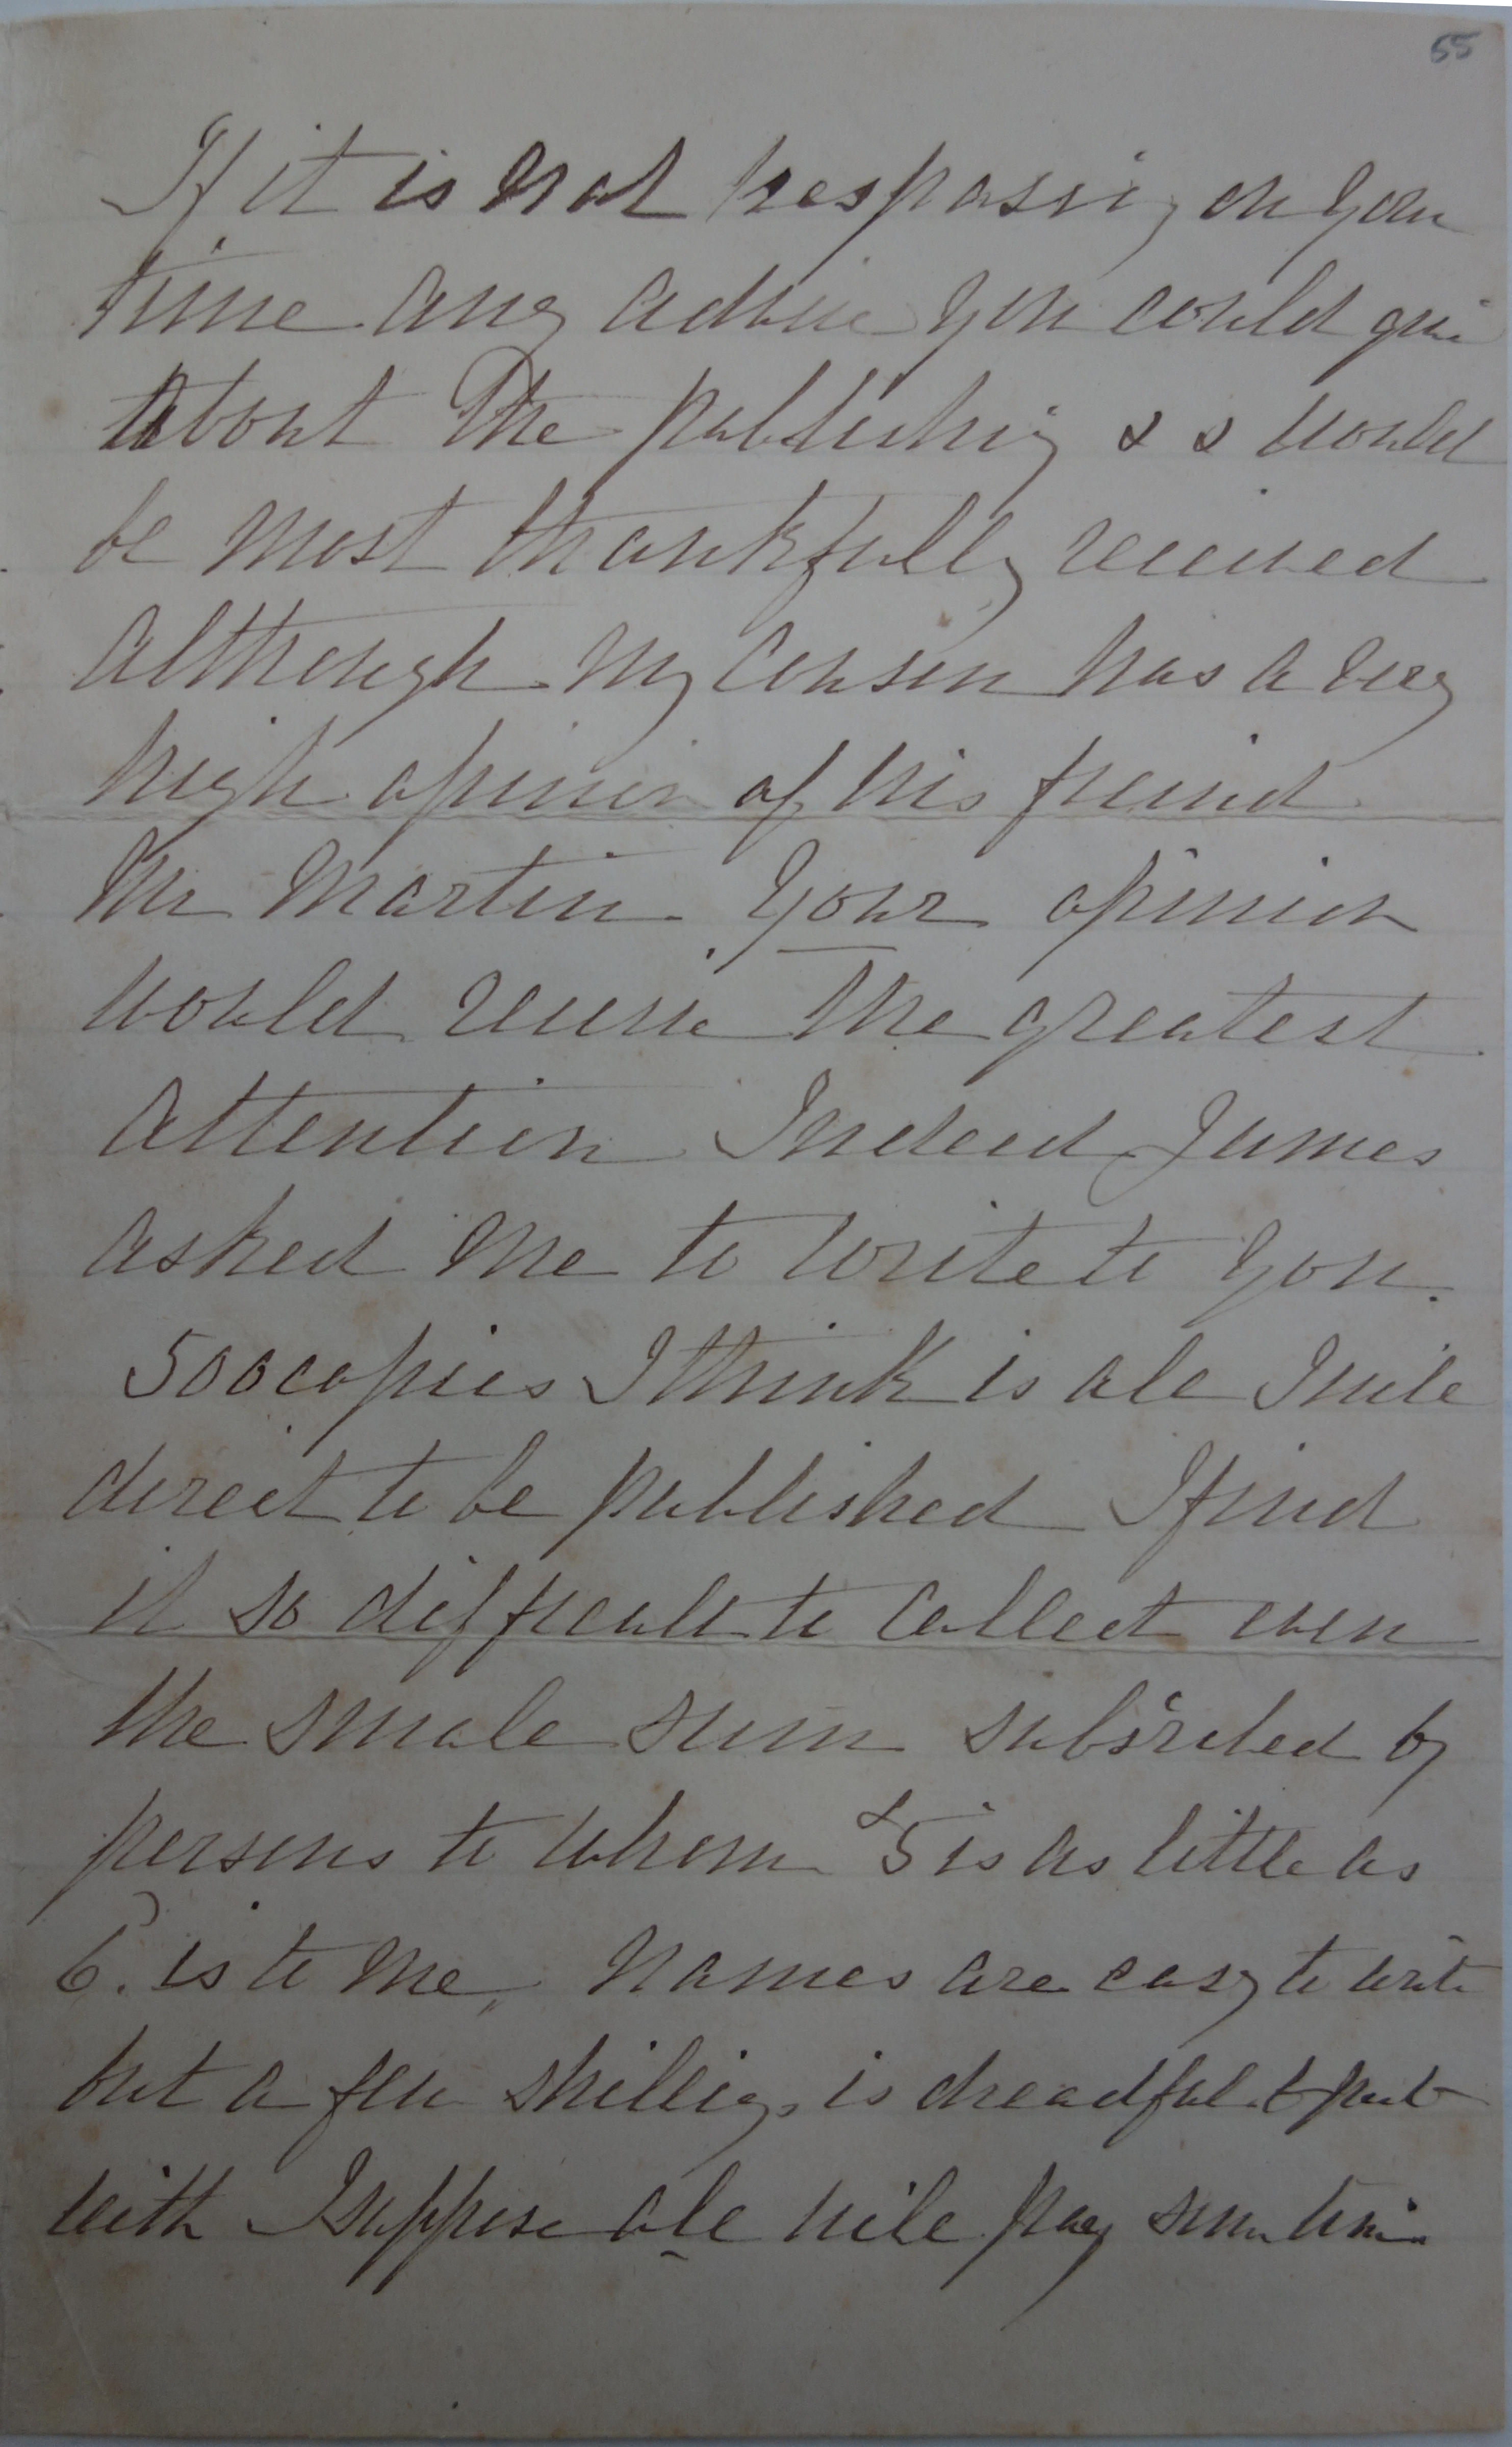 55
If it is not trespassing on your
time any advice you could give
about the publishing & & would
be most thankfully received
although my cousin has a very
high opinion of his friend
Mr Martin. Your opinion
would receive the greatest
attention Indeed James
asked me to write to you.
500 copies I think is all I will
direct to be published I find
it so difficult to collect even
the small sum subscribed by
persons to whom £5 is as little as
6. is to me, names are easy to write
but a few shillings is dreadful to part
with I suppose all will pay some time